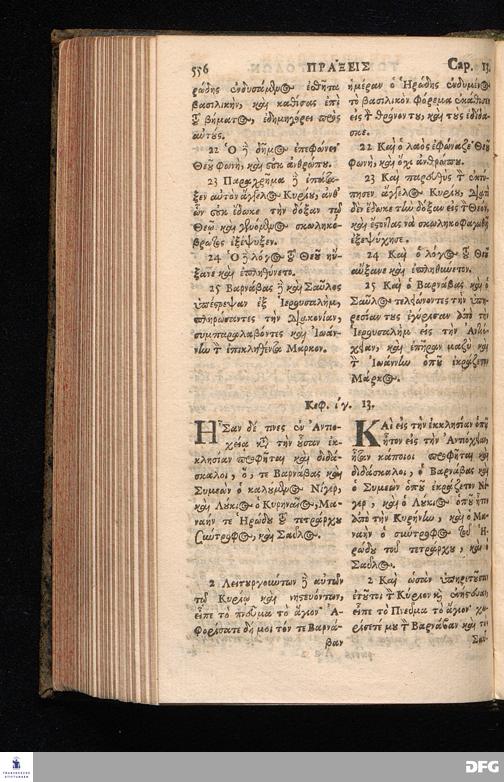 556 ΠΡΑΞΕΙΣ Cap. 13.
ρώδης ἐνδυσάμενος ἐσθῆτα
βασιλικὴν, καὶ καθίσας ἐπὶ
τοῦ βήματος, ἐδημηγόρει πρὸς
αὐτούς.
22 Ὁ δὲ δῆμος ἐπεφώνει
Θεοῦ φωνὴ, καὶ οὐκ ἀνθρώπου.
23 Παραχρῆμα δὲ ἐπάτα-
ξεν αὐτὸν ἄγγελος Κυρίου, ἀνθ'
ὧν οὐκ ἔδωκε τὴν δόξαν τῷ
Θεῷ· καὶ γενόμενος σκωληκό-
βρωτος ἐξέψυξεν.
24 Ὁ δὲ λόγος τοῦ Θεοῦ ηὔ-
ξανε καὶ ἐπληθύνετο.
25 Βαρνάβας δὲ καὶ Σαῦλος
ὑπέστρεψαν ἐξ Ἱερουσαλήμ,
πληρώσαντες τὴν διακονίαν,
συμπαραλαβόντες καὶ Ἰωάν-
νην τὸν ἐπικληθέντα Μάρκον.
ἡμέραν ὁ Ἡρώδης ἐνδυμένος
τὸ βασιλικὸν φόρεμα ἐκάθισεν
εἰς τὸν θρόνον του, καὶ τοὺς ἐδίδα-
σκε.
22 Καὶ ὁ λαὸς ἐφώναζε Θεοῦ
φωνὴ, καὶ ὄχι ἀνθρώπου.
23 Καὶ παρευθὺς τὸν ἐκτύ-
πησεν ἄγγελος Κυρίου, διατὶ
δὲν ἔδωκε τὴν δόξαν εἰς τὸν Θεὸν,
καὶ ἔστοντας νὰ σκωληκοφαγωθῇ
ἐξεψύχησε.
24 Καὶ ὁ λόγος τοῦ Θεοῦ
αὔξανε καὶ ἐπληθύνετον.
25 Καὶ ὁ Βαρνάβας καὶ ὁ
Σαῦλος τελήωνοντες τὴν ὑπη-
ρεσίαν τους ἐγύρισαν ἀπὸ τὴν
Ἱερουσαλὴμ εἰς τὴν Ἀντιό-
χειαν, καὶ ἐπῆραν μαζὺ καὶ
τὸν Ἰωάννην ὁποῦ ἐκράζετον
Μάρκος.
Κεφ. ιγ. 13.
ἮΣαν δέ τινες ἐν Ἀντιο-
χείᾳ κατὰ τὴν οὖσαν ἐκ-
κλησίαν προφῆται καὶ διδά-
σκαλοι, ὅ, τε Βαρνάβας καὶ
Συμεὼν ὁ καλούμενος Νίγερ,
καὶ Λούκιος ὁ Κυρηναῖος, Μα-
ναήν τε Ἡρώδου τοῦ τετράρχου
σύντροφος, καὶ Σαῦλος.
2 Λειτουργούντων δὲ αὐτῶν
τῷ Κυρίῳ καὶ νηστευόντων,
εἶπε τὸ πνεῦμα τὸ ἅγιον· Ἀ-
φορίσατε δή μοι τόν τε Βαρνά-
βαν
ΚΑὶ εἰς τὴν ἐκκλησίαν ὁποῦ
ἦτον εἰς τὴν Ἀντιόχειαν,
ἦσαν κάποιοι προφῆται καὶ
διδάσκαλοι, ὁ Βαρνάβας καὶ
ὁ Συμεὼν ὁποῦ ἐκράζετον Νί-
γερ, καὶ ὁ Λούκιος ὁποῦ ἦτον
ἀπὸ τὴν Κυρήνην, καὶ ὁ Μα-
ναὴν ὁ σύντροφος τοῦ Ἡ-
ρώδου τοῦ τετράρχου, καὶ ὁ
Σαῦλος.
2 Καὶ ὡσὰν ὑπηρετοῦσαν
ἐτοῦτοι τὸν Κύριον καὶ ἐνήστευαν,
εἶπε τὸ Πνεῦμα τὸ ἅγιον· χω-
ρίσετέ μου τὸν Βαρνάβαν καὶ τὸν
Σαῦ-
FRANCKESCHE
STIFTUNGEN
DFG